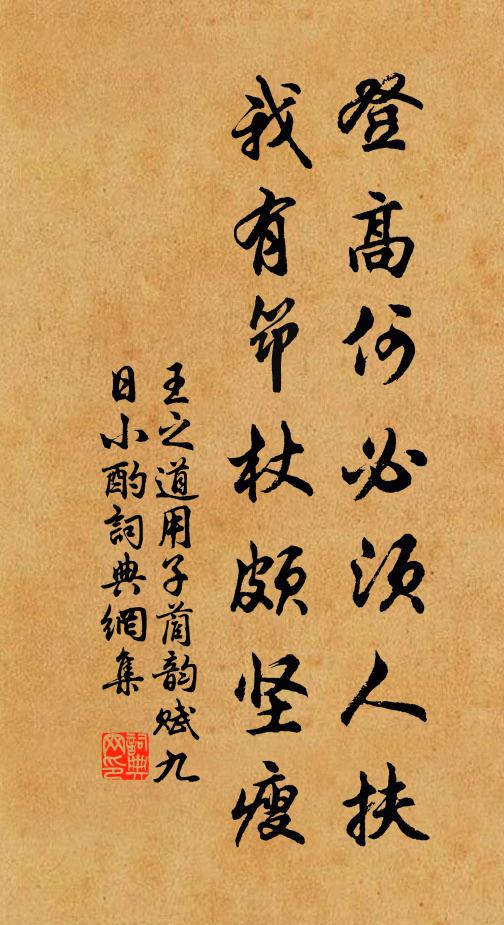 登高何必須人扶
我有筇杖頗坚瘦
王之道用子韵賦九
日小酌詞典網集
詞典
网印